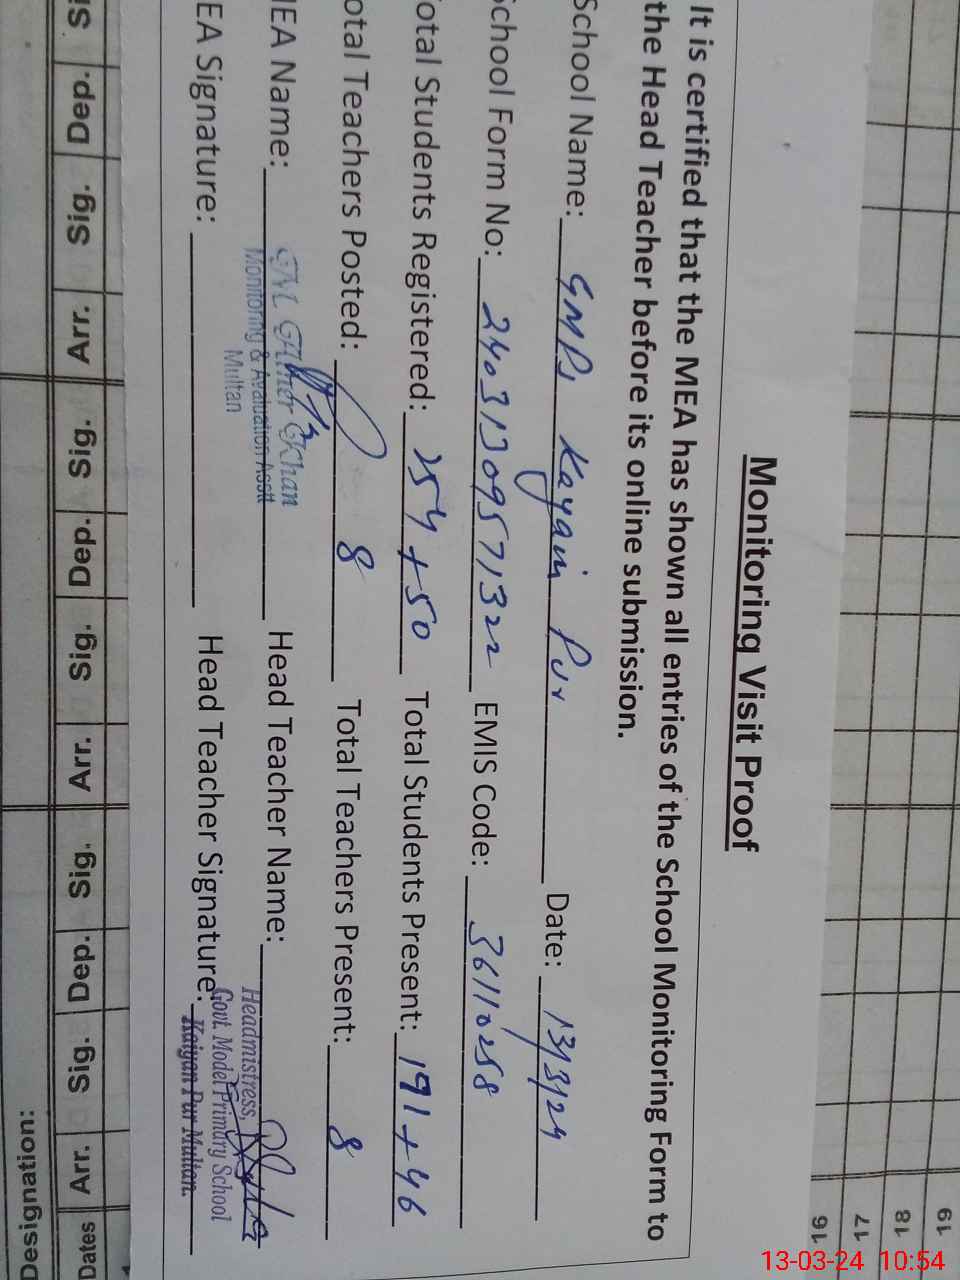 Monitoring Visit Proof
It is certified that the MEA has shown all entries of the School Monitoring Form to
the Head Teacher before its online submission.
School Name: GMPS, Kayain Pur Date: 13/3/24
School Form No: 24031309571322 EMIS Code: 36110258
otal Students Registered: 254 + 50 Total Students Present: 191 + 46
otal Teachers Posted: 8 Total Teachers Present: 8
MEA Name: Khan Head Teacher Name:
Monitoring & Avaluation Asstt
Multan
EA Signature: Head Teacher Signature:
Headmistress,
Govt. Model Primary School
Kaiyan Pur Multan.
S Dep. Sig. Arr. Sig. Dep. Sig. Arr. Sig. Dep. Sig. Arr. Dates
Designation:
16
17
18
19
13-03-24 10:54